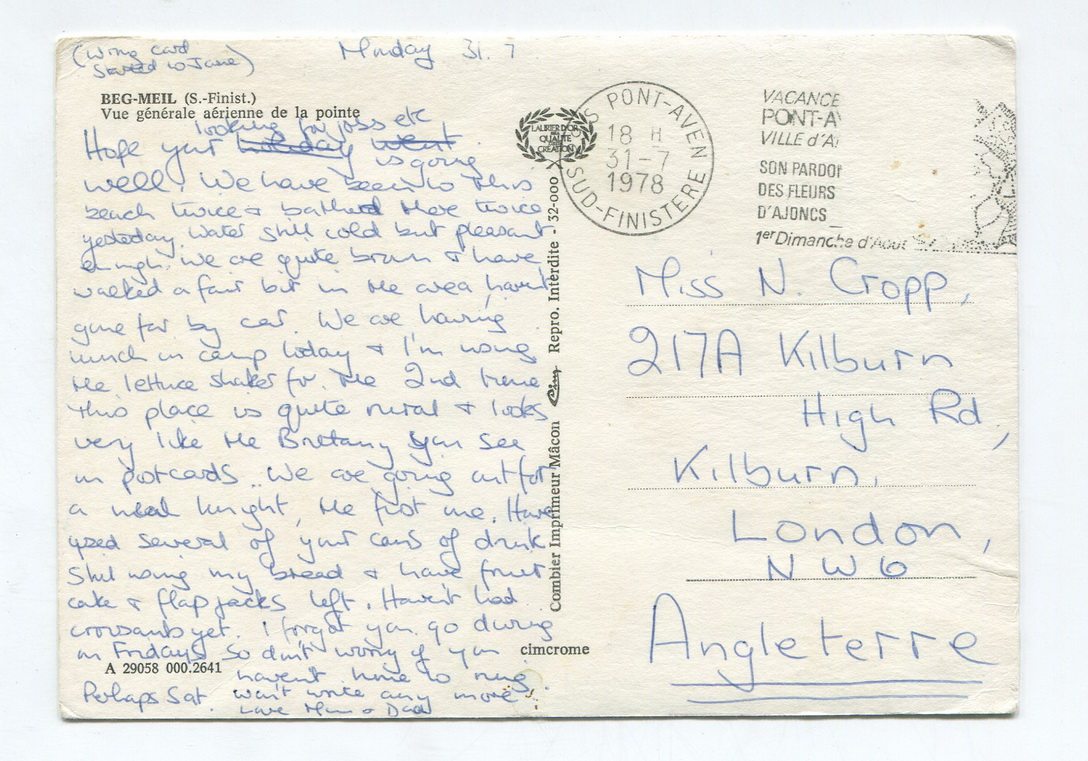 (Wrong card
to Jane)
Monday 31.7
BEG-MEIL (S.-Finist.)
Vue générale aérienne de la pointe
looking for jobs etc
Hope your holiday went is going
well. We have been to this
beach twice & bathed there twice
yesterday. Water still cold but pleasant
enough. We are quite brown & have
walked a fair bit in the area, haven't
gone far by car. We are having
lunch in camp today & I'm using
the lettuce shaker for the 2nd time
This place is quite rural & looks
very like the Brittany you see
in postcards. We are going out for
a meal tonight, the first one. Have
used several of your cans of drink
Still using my bread & have fruit
cake & flapjacks left. Haven't had
croissants yet. I forgot you go during
on Fridays so don't worry if you
haven't time to ring.
Perhaps Sat. won't write any more
Love Mum & Dad
A 29058 000.2641
cimcrome
Combier Imprimeur Mâcon Cim Repro. Interdite - 32-000
LAURIER D'OR
QUALITÉ
CRÉATION
PONT-AVEN
18 H
31-7
1978
SUD-FINISTERE
VACANCE
PONT-AV
VILLE d'A
SON PARDON
DES FLEURS
D'AJONCS
1er Dimanche d'Août
Miss N. Cropp,
217A Kilburn
High Rd,
Kilburn,
London,
NW6
Angleterre